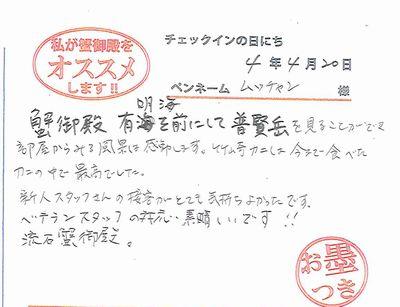 私が蟹御殿を
オススメ
します!!
チェックインの日にち
4年4月20日
ペンネーム ムッチャン 様
明海
蟹御殿 有海を前にして普賢岳を見ることができ
部屋からみる風景は感動します。竹崎カニは今まで食べた
カニの中で最高でした。
新人スタッフさんの接客がとても気持ちよかったです。
ベテランスタッフの対応、素晴しいです!!
流石蟹御殿。
お墨
つき